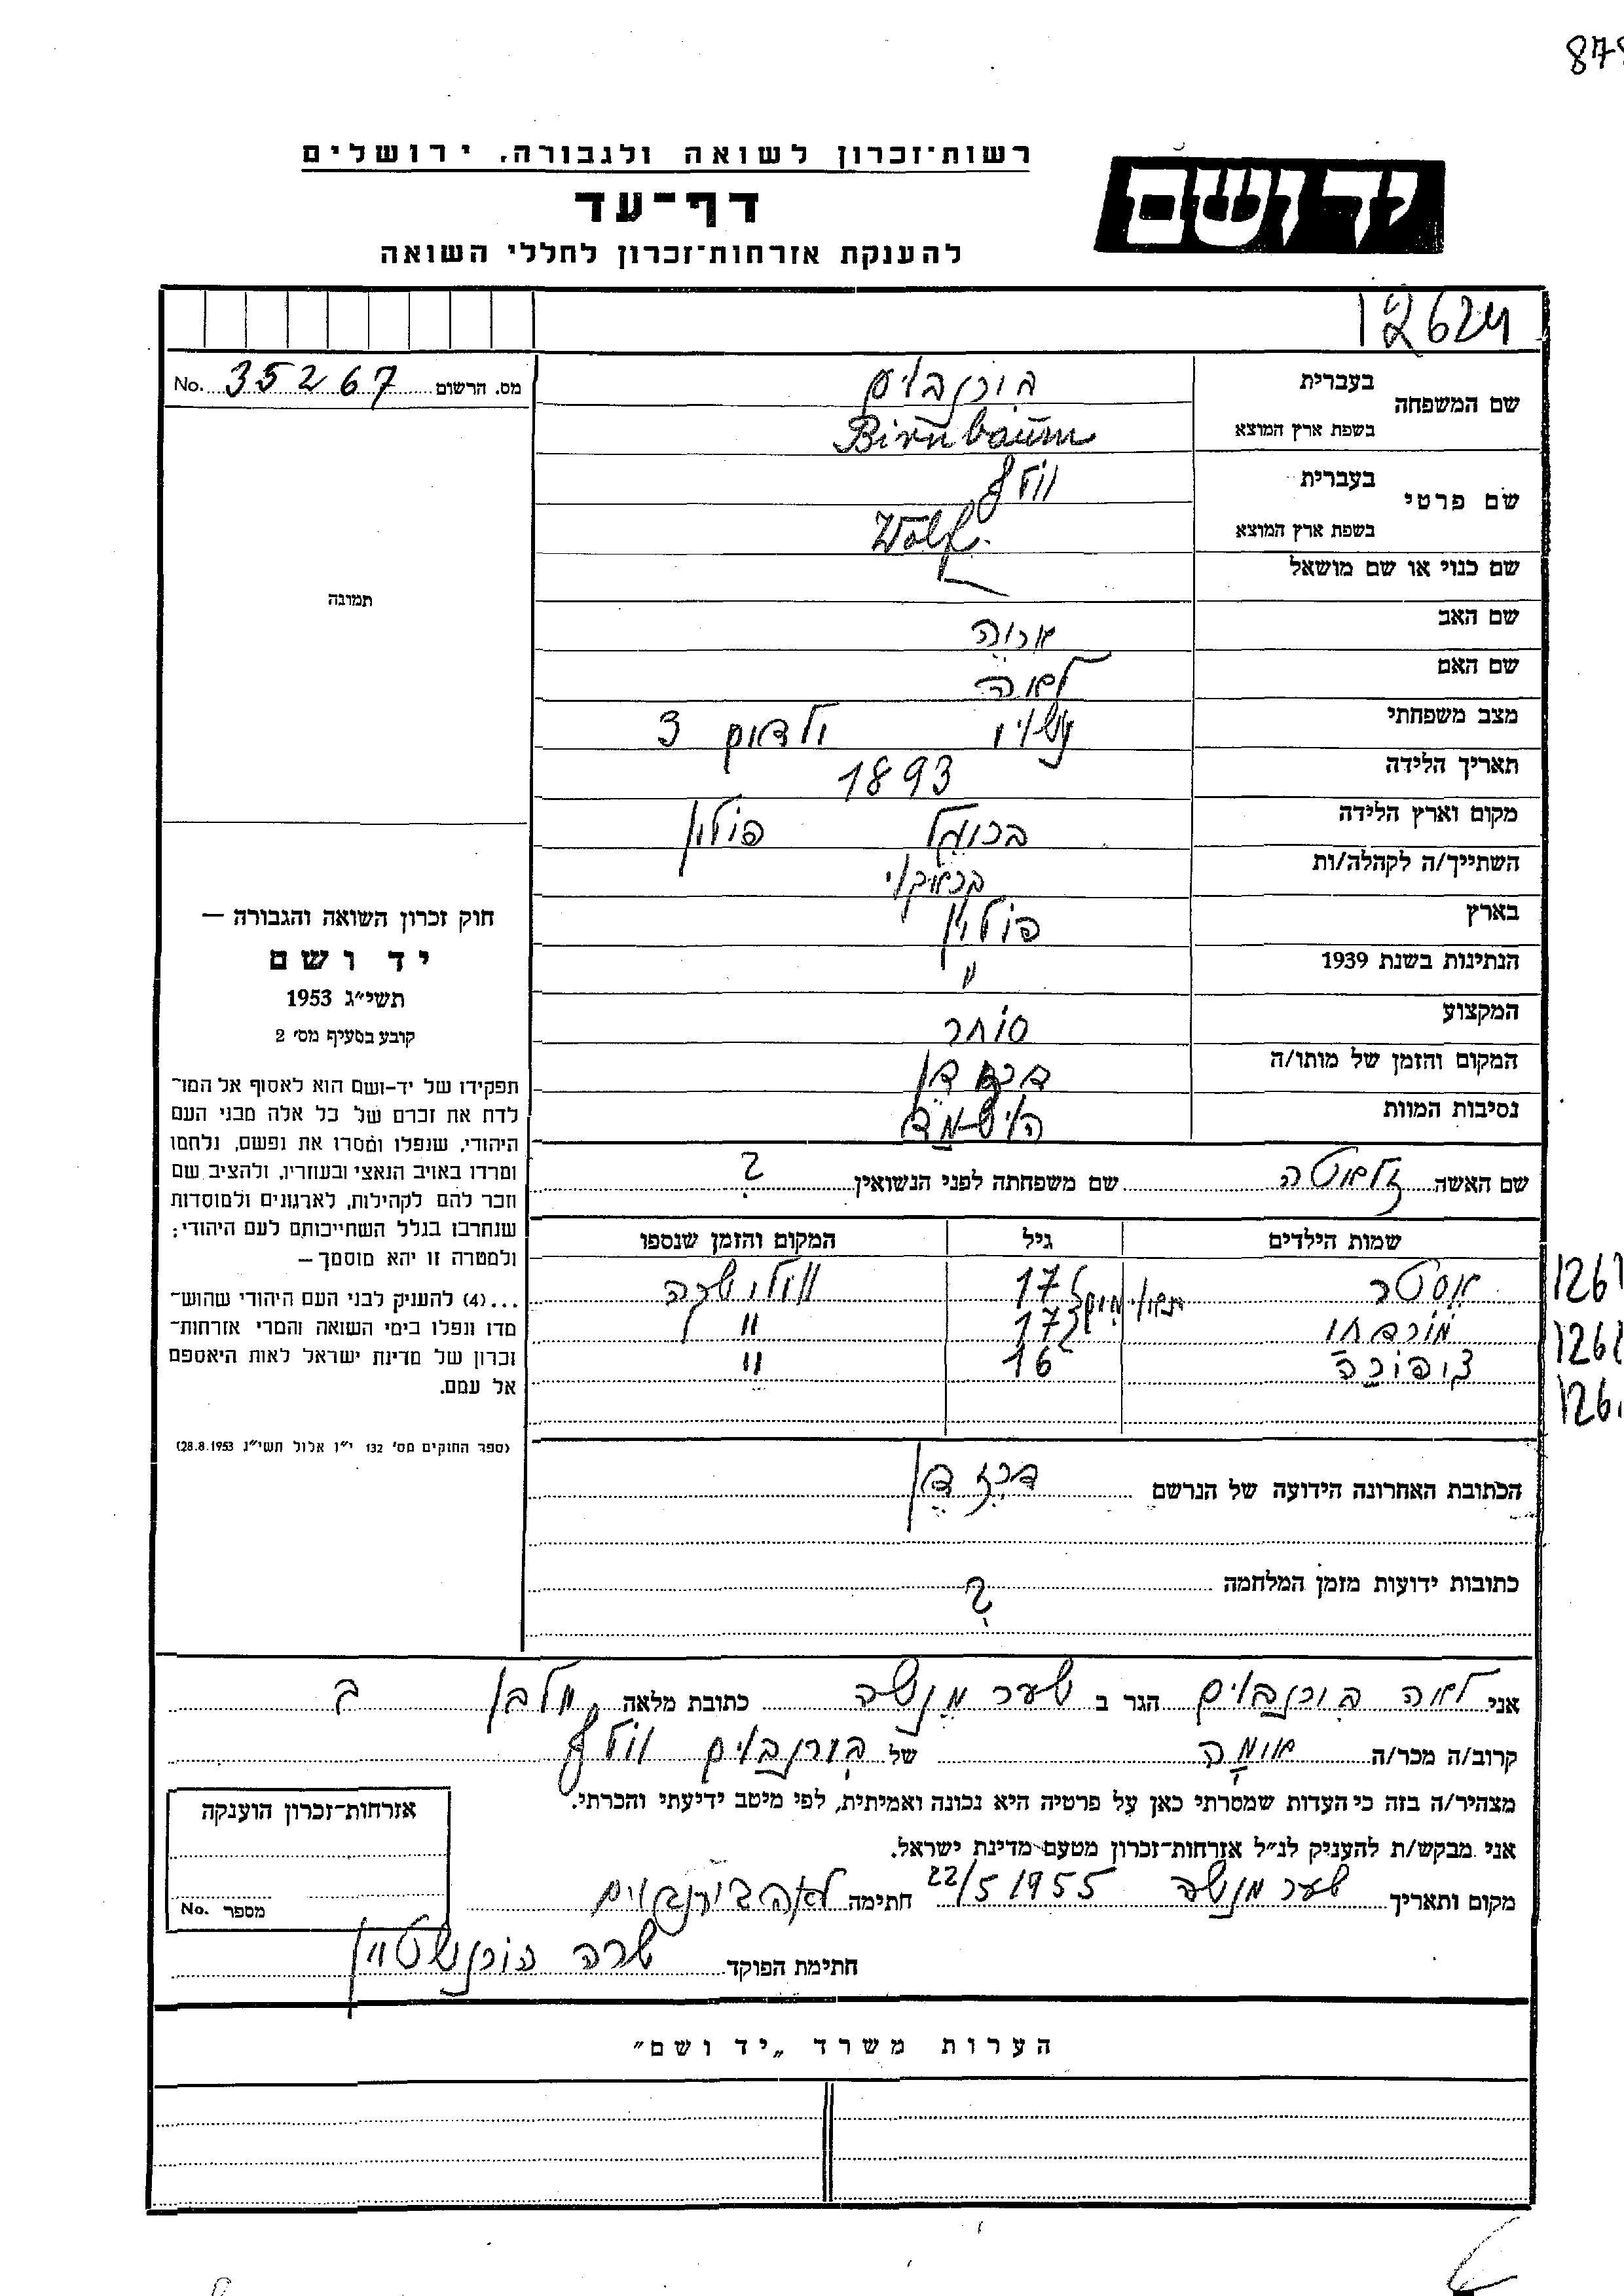 878
רשות־זכרון לשואה ולגבורה, ירושלים
יד ושם
דף־עד
להענקת אזרחות־זכרון לחללי השואה
12624
מס. הרשום 35267 No.
שם המשפחה בעברית בירנבוים
בשפת ארץ המוצא Birnbaum
שם פרטי בעברית וולף
בשפת ארץ המוצא Wolf.
שם כנוי או שם מושאל
שם האב אריה
שם האם לאה
מצב משפחתי נשוי ילדים 3
תאריך הלידה 1893
מקום וארץ הלידה פולין
השתייך/ה לקהלה/ות
בארץ פולין
הנתינות בשנת 1939 "
המקצוע סוחר
המקום והזמן של מותו/ה
נסיבות המוות
תמונה
חוק זכרון השואה והגבורה —
יד ושם
תשי״ג 1953
קובע בסעיף מס׳ 2
תפקידו של יד-ושם הוא לאסוף אל המו־
לדת את זכרם של כל אלה מבני העם
היהודי, שנפלו ומסרו את נפשם, נלחמו
ומרדו באויב הנאצי ובעוזריו, ולהציב שם
וזכר להם לקהילות, לארגונים ולמוסדות
שנחרבו בגלל השתייכותם לעם היהודי;
ולמטרה זו יהא מוסמך —
...(4) להעניק לבני העם היהודי שהוש־
מדו ונפלו בימי השואה והמרי אזרחות־
זכרון של מדינת ישראל לאות היאספם
אל עמם.
(ספר החוקים מס׳ 132 י״ז אלול תשי״ג 28.8.1953)
שם האשה זלאטה שם משפחתה לפני הנשואין ?
שמות הילדים גיל המקום והזמן שנספו
אסטר 17 תאומים
מורדכי 17 "
צפורה 16 "
1261
1262
126
הכתובת האחרונה הידועה של הנרשם
כתובות ידועות מזמן המלחמה ?
אני לאה בירנבוים הגר ב שער מנשה כתובת מלאה מלבן ב
קרוב/ה מכר/ה אמא של בירנבוים וולף
מצהיר/ה בזה כי העדות שמסרתי כאן על פרטיה היא נכונה ואמיתית, לפי מיטב ידיעתי והכרתי.
אני מבקש/ת להעניק לנ״ל אזרחות־זכרון מטעם מדינת ישראל.
מקום ותאריך שער מנשה 22/5 1955 חתימה לאה בירנבוים
חתימת הפוקד שרה בורנשטיין
אזרחות־זכרון הוענקה
מספר No.
הערות משרד „יד ושם״